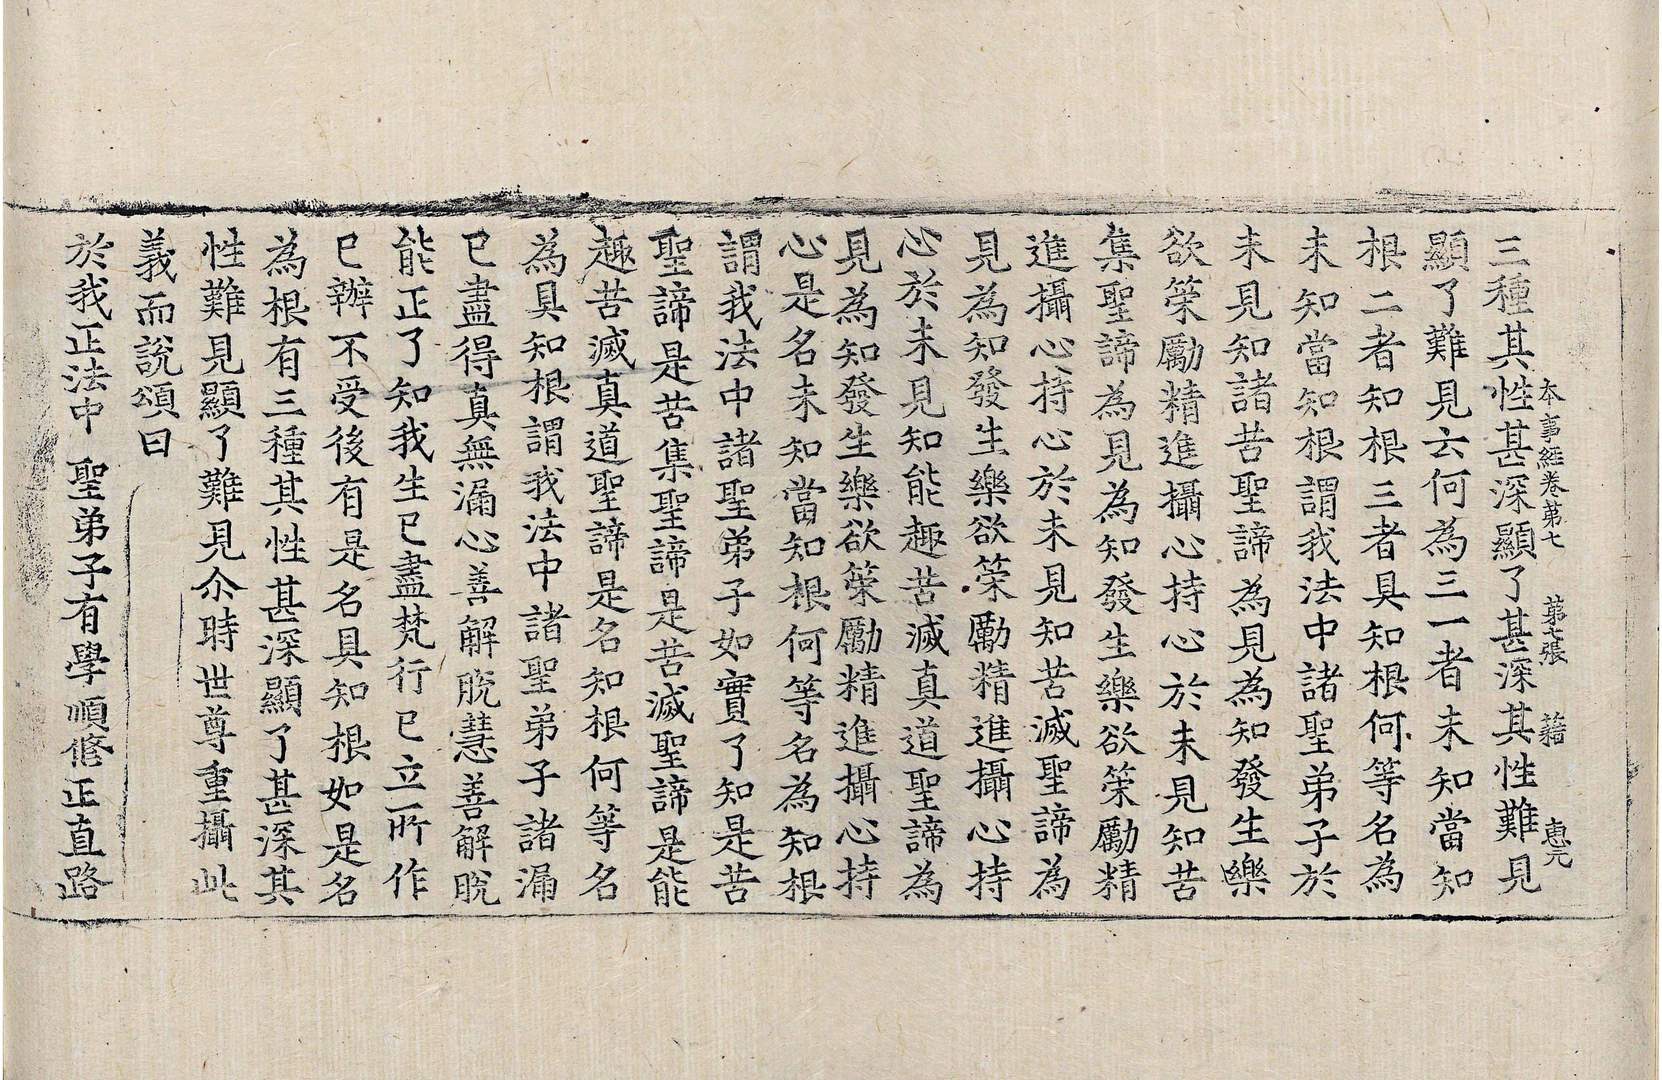 本事經卷第七 第七張 籍 惠元
三種其性甚深顯了甚深其性難見
顯了難見云何為三一者未知當知
根二者知根三者具知根何等名為
未知當知根謂我法中諸聖弟子於
未見知諸苦聖諦為見為知發生樂
欲策勵精進攝心持心於未見知苦
集聖諦為見為知發生樂欲策勵精
進攝心持心於未見知苦滅聖諦為
見為知發生樂欲策勵精進攝心持
心於未見知能趣苦滅真道聖諦為
見為知發生樂欲策勵精進攝心持
心是名未知當知根何等名為知根
謂我法中諸聖弟子如實了知是苦
聖諦是苦集聖諦是苦滅聖諦是能
趣苦滅真道聖諦是名知根何等名
為具知根謂我法中諸聖弟子諸漏
已盡得真無漏心善解脫慧善解脫
能正了知我生已盡梵行已立所作
已辦不受後有是名具知根如是名
為根有三種其性甚深顯了甚深其
性難見顯了難見尒時世尊重攝此
義而說頌曰
於我正法中 聖弟子有學順修正直路